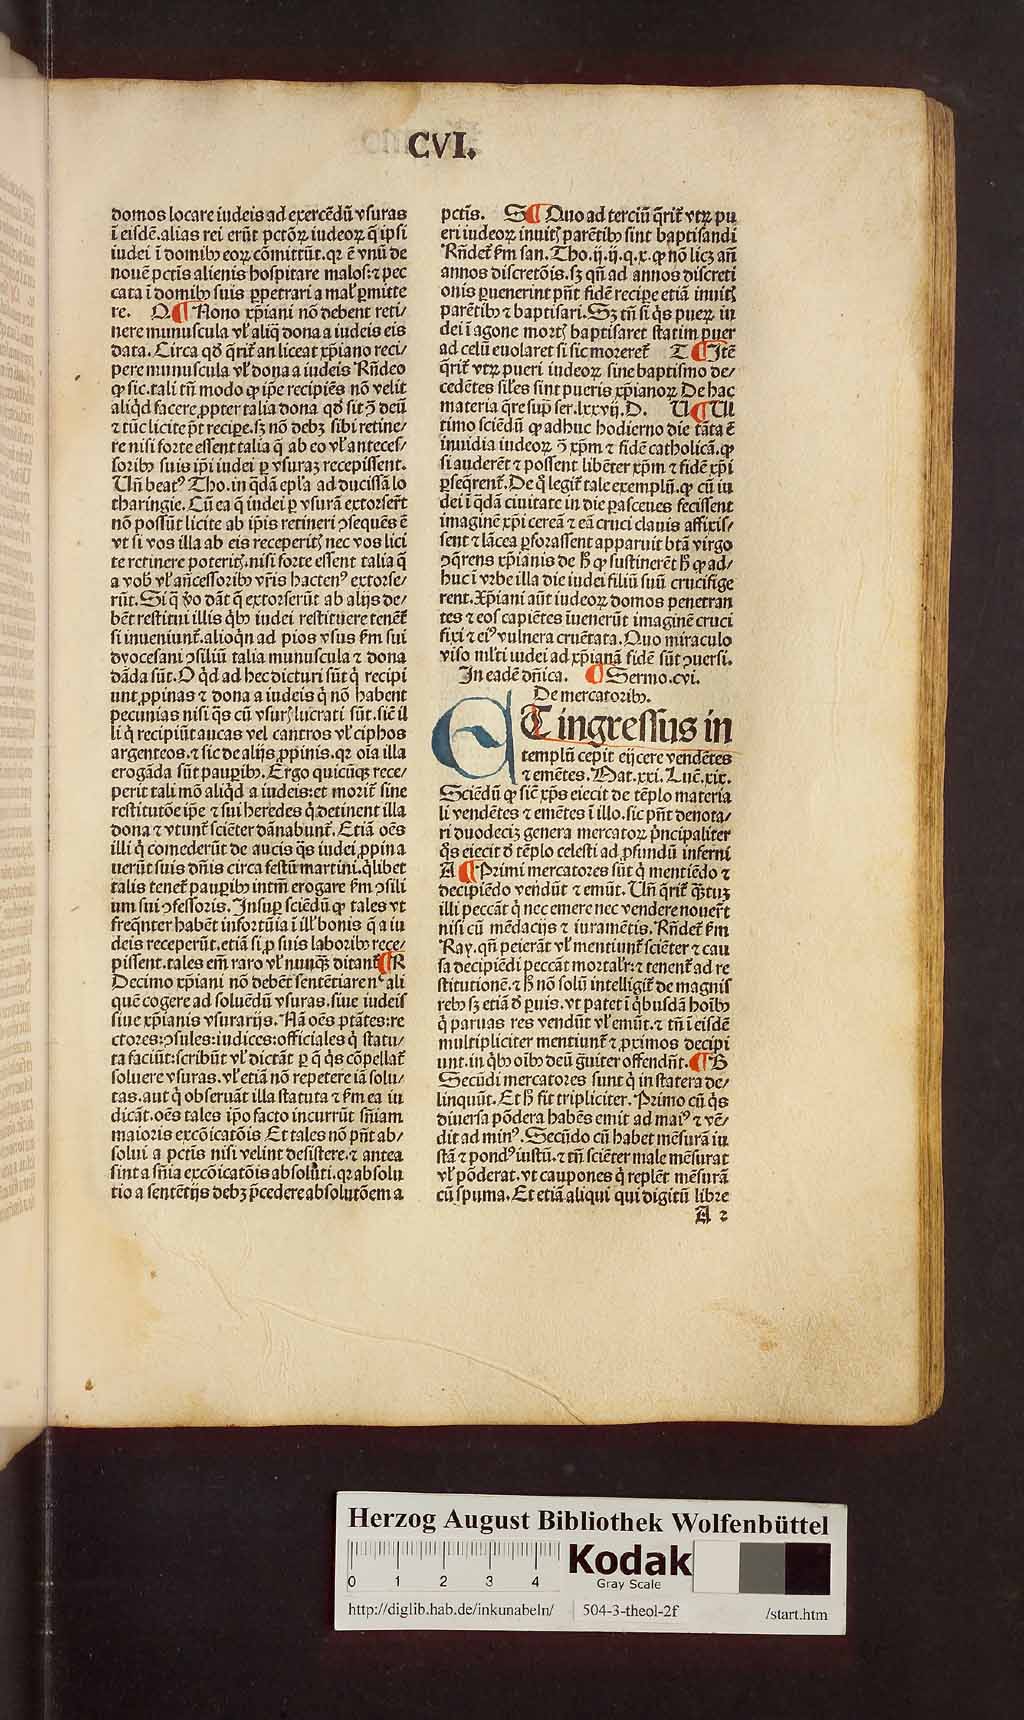 CVI.
domos locare iudeis ad exercēdū vsuras
ī eisdē.alias rei erūt pctōꝝ iudeoꝝ q̄ ipsi
iudei ī domibꝰ eoꝝ cōmittūt.qꝛ ē vnū de
nouē pctis alienis hospitare malos:⁊ pec
cata ī domibꝰ suis ꝑpetrari a mał ꝑmitte
re. Q ¶ Nono xp̄iani nō debent reti/
nere munuscula vł aliq̄ dona a iudeis eis
data. Circa qđ q̄rit̄ an liceat xp̄iano reci/
pere munuscula vł dona a iudeis Rn̄deo
ꝙ sic.tali tn̄ modo ꝙ ip̄e recipiēs nō velit
aliqđ facere ꝓpter talia dona qđ sit ꝯ̄ deū
⁊ tūc licite pōt recipe.sꝫ nō debꝫ sibi retine/
re nisi forte essent talia q̄ ab eo vł anteces/
soribꝰ suis ip̄i iudei ꝑ vsuraꝫ recepissent.
Un̄ beatꝰ Tho.in q̄dā epl̄a ad ducissā lo
tharingie. Cū ea q̄ iudei ꝑ vsurā extorser̄t
nō possūt licite ab ip̄is retineri ꝯsequēs ē
vt si vos illa ab eis receperitꝭ nec vos lici
te retinere poteritꝭ.nisi forte essent talia q̄
a vob̄ vł an̄cessoribꝰ vr̄is hactenꝰ extorse/
rūt. Si q̄ v̊o dāt q̄ extorserūt ab alijs de/
bēt restitui illis q̄bꝰ iudei restituere tenet̄
si inueniunt̄.alioqn̄ ad pios vsus ẜm sui
dyocesani ꝯsiliū talia munuscula ⁊ dona
dāda sūt. O qđ ad hec dicturi sūt q̇ recipi
unt ꝓpinas ⁊ dona a iudeis q̇ nō habent
pecunias nisi q̄s cū vsurꝭ lucrati sūt.sic̄ il
li q̇ recipiūt aucas vel cantros vł ciphos
argenteos.⁊ sic de alijs ꝓpinis.qꝛ oīa illa
erogāda sūt pauꝑibꝰ. Ergo quicūqꝫ rece/
perit tali mō aliqđ a iudeis:et morit̄ sine
restitutōe ip̄e ⁊ sui heredes q̇ detinent illa
dona ⁊ vtunt̄ sciēter dānabunt̄. Etiā oēs
illi q̇ comederūt de aucis q̄s iudei ꝓpina
uerūt suis dn̄is circa festū martini.q̇libet
talis tenet̄ pauꝑibꝰ intm̄ erogare ẜm ꝯsili
um sui ꝯfessoris. Insuꝑ sciēdū ꝙ tales vt
freq̄nter habēt infortūia ī illꝭ bonis q̄ a iu
deis receperūt.etiā si ꝑ suis laboribꝰ rece/
pissent.tales em̄ raro vł nunqꝫ ditant̄ ¶ R
Decimo xp̄iani nō debēt sentētiare nᶜ ali
quē cogere ad soluēdū vsuras.siue iudeis
siue xp̄ianis vsurarijs. Nā oēs ptātes:re
ctores:ꝯsules:iudices:officiales q̇ statu/
ta faciūt:scribūt vł dictāt ꝑ q̄ q̇s cōpellat̄
soluere vsuras.vł etiā nō repetere iā solu/
tas.aut q̇ obseruāt illa statuta ⁊ ẜm ea iu
dicāt.oēs tales ip̄o facto incurrūt sn̄iam
maioris excōicatōis Et tales nō pn̄t ab/
solui a pctis nisi velint desistere.⁊ antea
sint a sn̄ia excōicatōis absoluti.qꝛ absolu
tio a sentētijs debꝫ p̄cedere absolutōem a
pctis. S ¶ Quo ad terciū q̄rit̄ vtꝝ pu
eri iudeoꝝ inuitꝭ parētibꝰ sint baptisandi
Rn̄det̄ ẜm san.Tho.ij.ij.q.x.ꝙ nō licꝫ an̄
annos discretōis.sꝫ qn̄ ad annos discreti
onis ꝑuenerint pn̄t fidē recipe etiā inuitꝭ
parētibꝰ ⁊ baptisari. Sꝫ tn̄ si q̇s pueꝝ iu
dei ī agone mortꝭ baptisaret statim puer
ad celū euolaret si sic moreret̄ T ¶ Itē
q̄rit̄ vtꝝ pueri iudeoꝝ sine baptismo de/
cedētes sil̄es sint pueris xp̄ianoꝝ De hac
materia q̄re sup̄ ser.lxxvij.D. U ¶ Ul
timo sciēdū ꝙ adhuc hodierno die tāta ē
inuidia iudeoꝝ ꝯ̄ xp̄m ⁊ fidē catholicā.ꝙ
si auderēt ⁊ possent libēter xp̄m ⁊ fidē xp̄i
ꝑseq̄rent̄. De q̊ legit̄ tale exemplū.ꝙ cū iu
dei ī q̄dā ciuitate in die pasceues fecissent
imaginē xp̄i cereā ⁊ eā cruci clauis affixis/
sent ⁊ lācea ꝑforassent apparuit btā virgo
ꝯq̄rens xp̄ianis de h̄ ꝙ sustinerēt h̄ ꝙ ad/
huc ī vrbe illa die iudei filiū suū crucifige
rent. Xp̄iani aūt iudeoꝝ domos penetran
tes ⁊ eos capiētes īuenerūt imaginē cruci
fixi ⁊ eiꝰ vulnera cruētata. Quo miraculo
viso ml̄ti iudei ad xp̄ianā fidē sūt ꝯuersi.
In eadē dn̄ica. ¶ Sermo.cvi.
De mercatoribꝰ.
ET ingressus in
templū cepit eijcere vendētes
⁊ emētes. Mat.xxi. Luc̄.xix.
Sciēdū ꝙ sic̄ xp̄s eiecit de tēplo materia
li vendētes ⁊ emētes ī illo.sic pn̄t denota/
ri duodeciꝫ genera mercatoꝝ p̄ncipaliter
q̄s eiecit đ tēplo celesti ad ꝓfundū inferni
A ¶ Primi mercatores sūt q̇ mentiēdo ⁊
decipiēdo vendūt ⁊ emūt. Un̄ q̄rit̄ q̄ꝫtuꝫ
illi peccāt q̇ nec emere nec vendere nouer̄t
nisi cū mēdacijs ⁊ iuramētis. Rn̄det̄ ẜm
Ray.qn̄ peierāt vł mentiunt̄ sciēter ⁊ cau
sa decipiēdi peccāt mortal̄r:⁊ tenent̄ ad re
stitutionē.⁊ h̄ nō solū intelligit̄ de magnis
rebꝰ sꝫ etiā đ ꝑuis.vt patet ī q̇busdā hoībꝰ
q̇ paruas res vendūt vł emūt.⁊ tn̄ ī eisdē
multipliciter mentiunt̄ ⁊ ꝓximos decipi
unt.in q̇bꝰ oībꝰ deū g̊uiter offendūt. ¶ B
Secūdi mercatores sunt q̇ in statera de/
linquūt. Et h̄ fit tripliciter. Primo cū q̇s
diuersa pōdera habēs emit ad maiꝰ ⁊ vē/
dit ad minꝰ. Secūdo cū habet mēsurā iu
stā ⁊ pondꝰ iustū.⁊ tn̄ sciēter male mēsurat
vł pōderat.vt caupones q̇ replēt mēsurā
cū spuma. Et etiā aliqui qui digitū libre
A 2
Herzog August Bibliothek Wolfenbüttel
0 1 2 3 4
Kodak
Gray Scale
http://diglib.hab.de/inkunabeln/ 504-3-theol-2f /start.htm